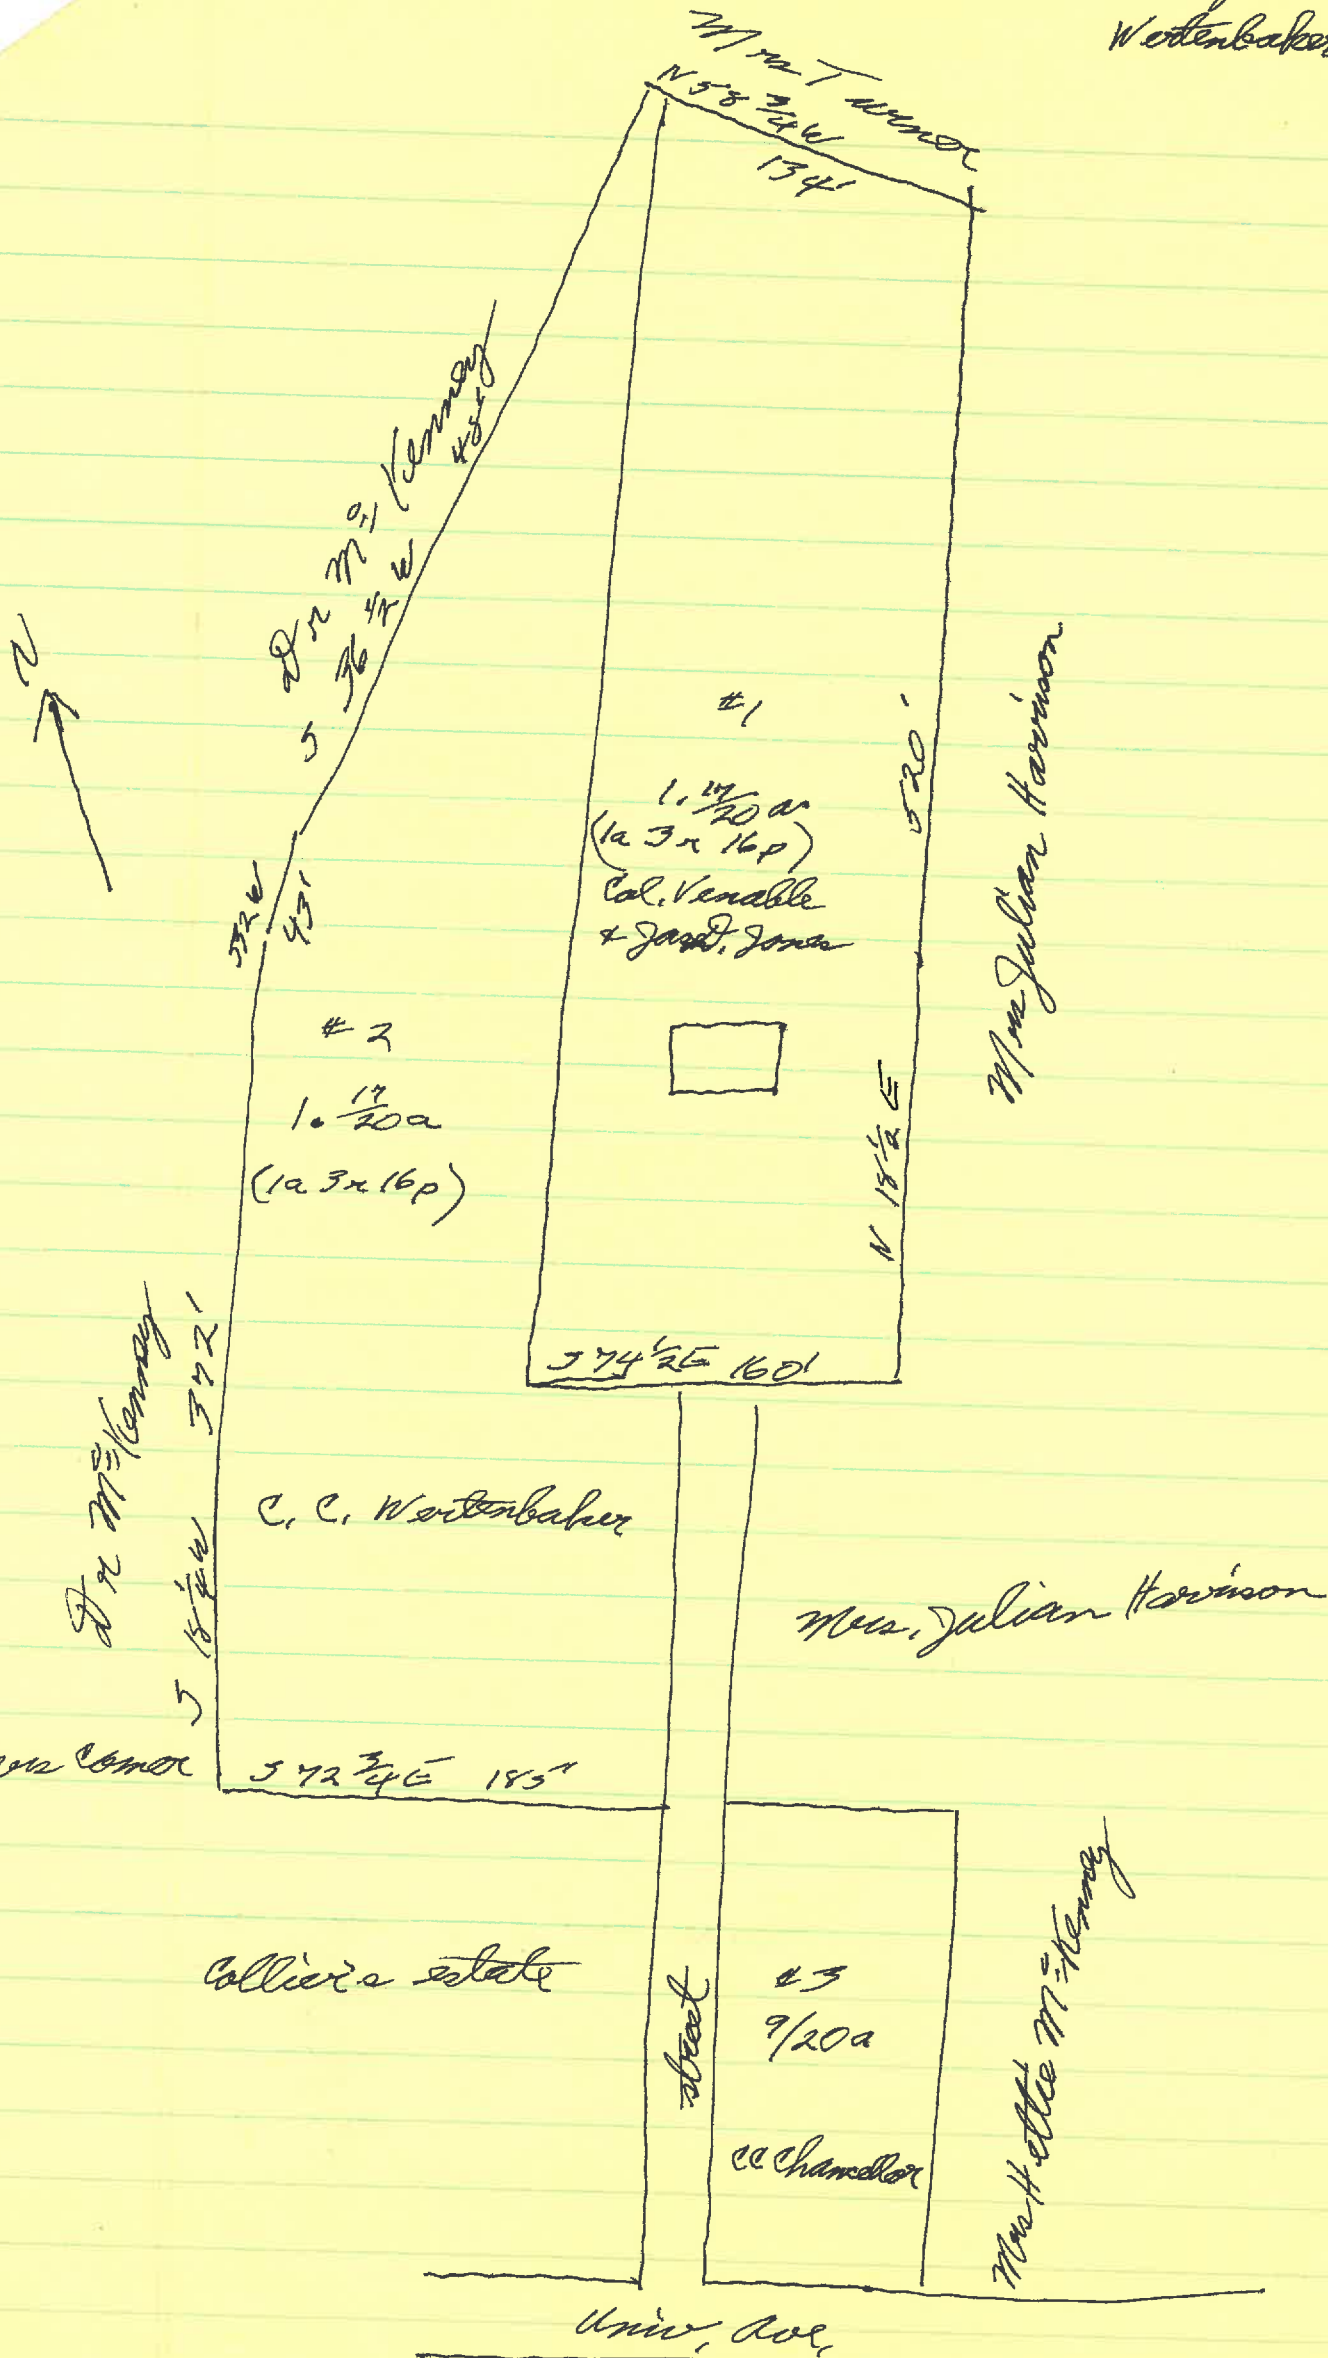 Wertenbaker
Mrs Turner
N 58 3/4 W
134'
Dr McKenney
S 36 1/2 W
N
#1
1. 17/20 a
(1a 3r 16p)
Col. Venable
& Jas D. Jones
520'
N 18 1/2 E
Mrs Julian Harrison
43'
#2
1. 17/20 a
(1a 3r 16p)
S 74 1/2 E 160'
Dr McKenney
S 18 1/4 W 372'
C. C. Wertenbaker
Mrs. Julian Harrison
Corner
S 72 3/4 E 185'
Collier's estate
street
#3
9/20a
CC Chancellor
Mrs Hettie McKenney
Univ. Ave.